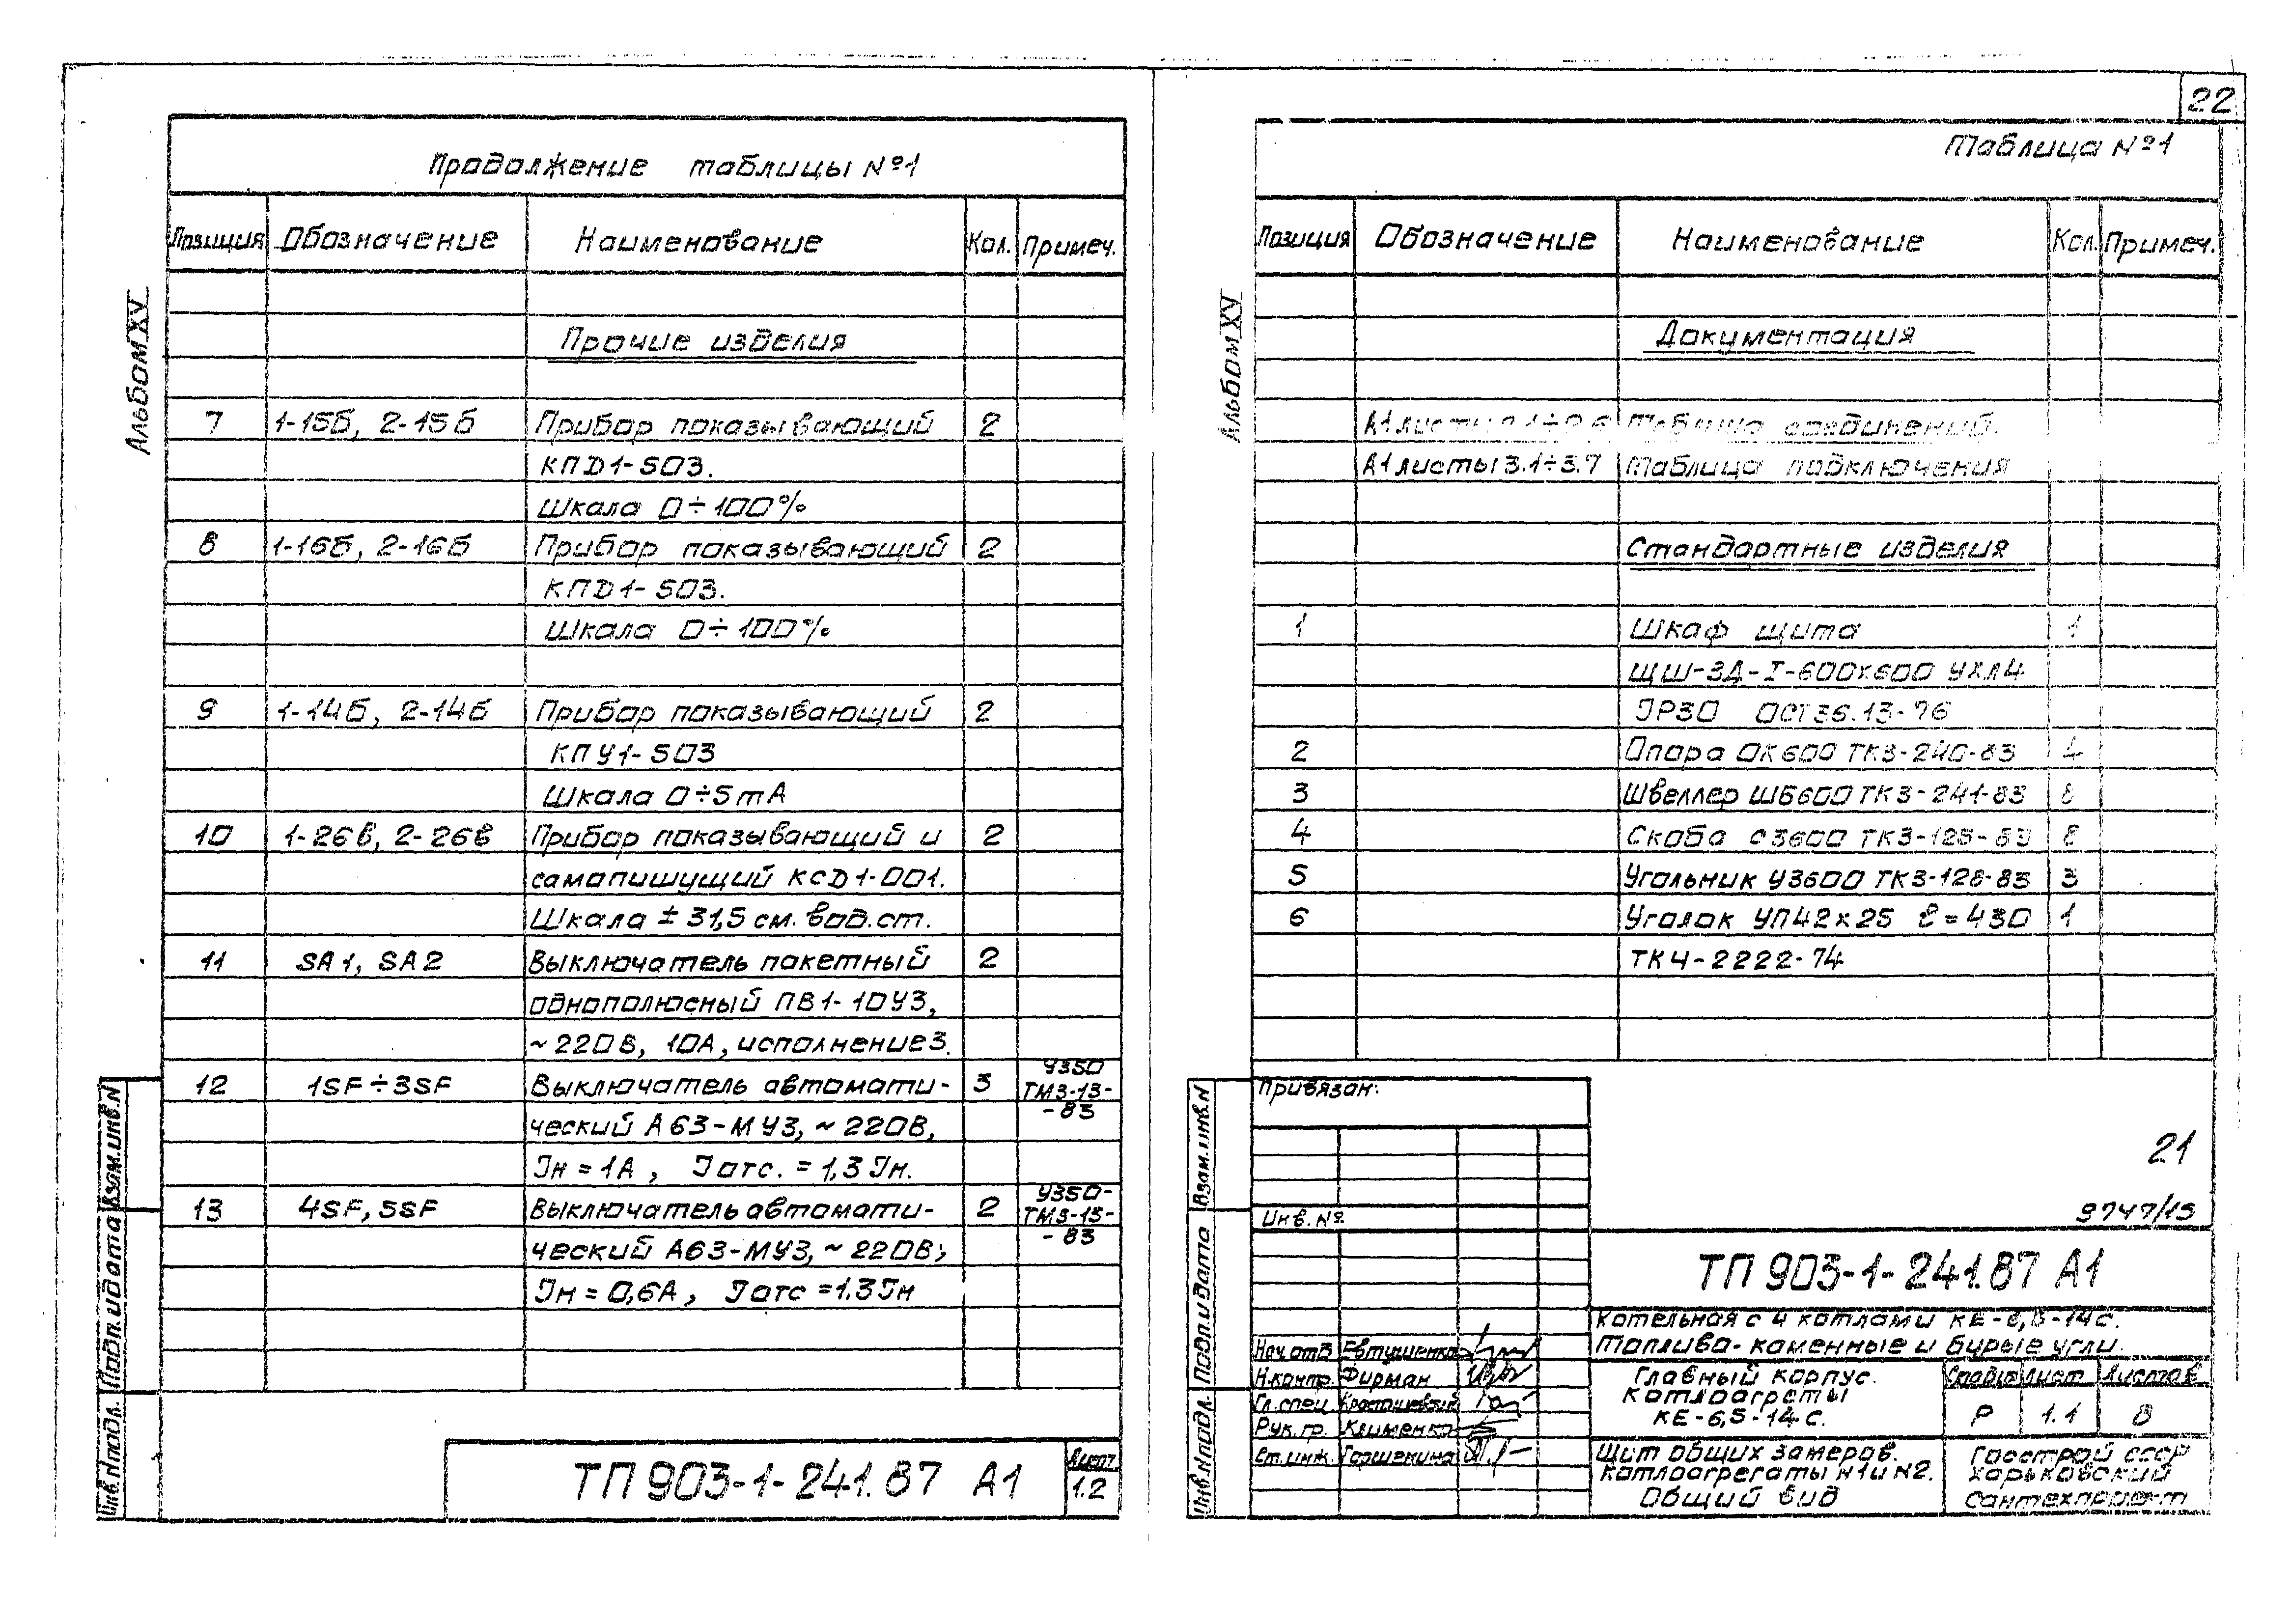 22
Альбом XV
Продолжение таблицы №1
Позиция Обозначение Наименование Кол. Примеч.
Прочие изделия
7 1-15б, 2-15б Прибор показывающий 2
КПД1-503.
Шкала 0÷100%
8 1-16б, 2-16б Прибор показывающий 2
КПД1-503.
Шкала 0÷100%
9 1-14б, 2-14б Прибор показывающий 2
КПУ1-503
Шкала 0÷5mA
10 1-26в, 2-26в Прибор показывающий и 2
самопишущий КСД1-001.
Шкала ±31,5 см. вод. ст.
11 SA1, SA2 Выключатель пакетный 2
однополюсный ПВ1-10У3,
~220В, 10А, исполнение 3.
12 1SF÷3SF Выключатель автомати- 3 У350
ТМ3-13-
-83
ческий А63-МУ3, ~220В,
Iн=1А, Iотс.=1,3Iн.
13 4SF, 5SF Выключатель автомати- 2 У350-
ТМ3-13-
-83
ческий А63-МУ3, ~220В;
Iн=0,6А, Iотс=1.3Iн
Инв.№подл. Подп. и дата Взам.инв.N
ТП 903-1-241.87 А1
Лист
1.2
Альбом XV
Таблица №1
Позиция Обозначение Наименование Кол. Примеч.
Документация
А1 листы Таблица соединений.
А1 листы 3.1÷3.7 Таблица подключения
Стандартные изделия
1 Шкаф щита 1
ЩШ-ЗД-I-600х600 УХЛ4
IP30 ОСТ36.13-76
2 Опора ОК600 ТК3-240-83 4
3 Швеллер ШБ600 ТК3-241-83 8
4 Скоба С3600 ТК3-125-83 8
5 Угольник У3600 ТК3-128-83 3
6 Уголок УП42х25 ℓ=430 1
ТК4-2222-74
Инв.№подл. Подп. и дата Взам.инв.N
Привязан:
Инв. №
21
9747/15
ТП 903-1-241.87 А1
Котельная с 4 котлами КЕ-6,5-14с.
Топливо-каменные и бурые угли.
Нач.отд Евтушенко
Н.контр. Фирман
Гл.спец.
Рук.гр. Клименко
Ст.инж. Горшенина
Главный корпус.
Котлоагреты
КЕ-6,5-14с.
Стадия Лист Листов
Р 1.1 8
Щит общих замеров.
Котлоагрегаты N1 и N2.
Общий вид
Госстрой СССР
Харьковский
Сантехпроект